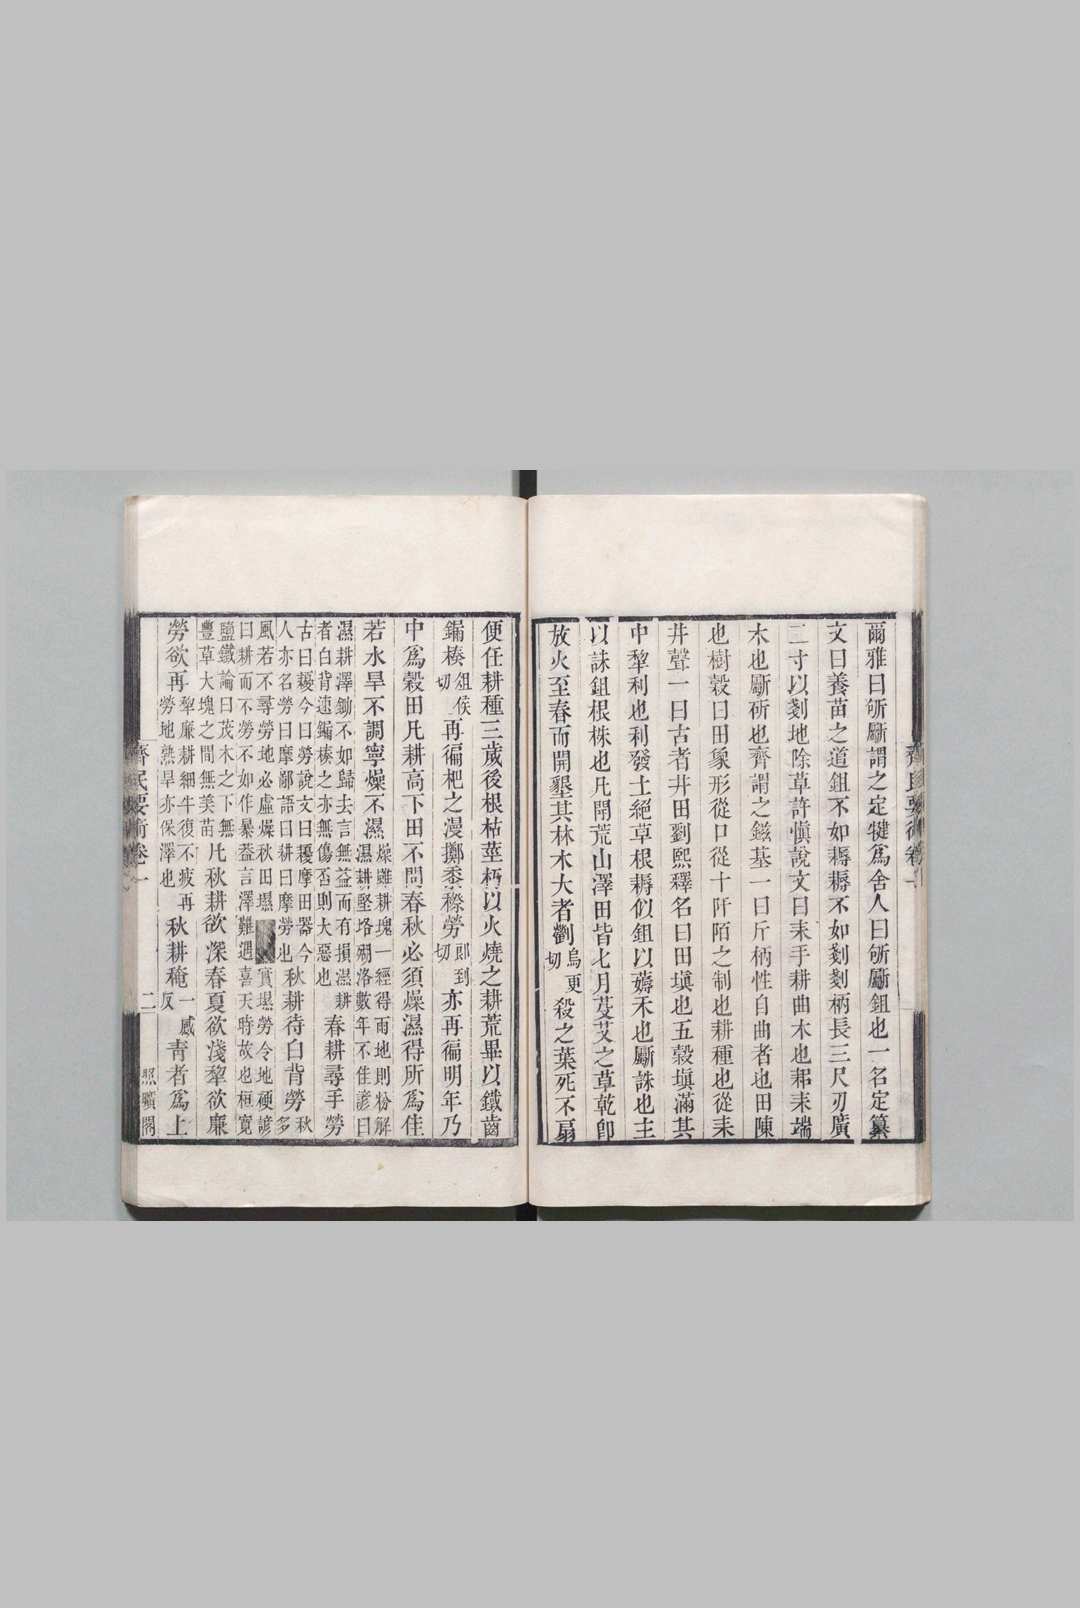 爾雅曰斫斸謂之定犍爲舍人曰斫斸鉏也一名定纂
文曰養苗之道鉏不如耨耨不如剗剗柄長三尺刃廣
二寸以剗地除草許愼說文曰耒手耕曲木也耜耒端
木也斸斫也齊謂之鎡基一曰斤柄性自曲者也田陳
也樹穀曰田象形從口從十阡陌之制也耕種也從耒
井聲一曰古者井田劉熙釋名曰田塡也五穀塡滿其
中犂利也利發土絕草根耨似鉏以薅禾也斸誅也主
以誅鉏根株也凡開荒山澤田皆七月芟艾之草乾卽
放火至春而開墾其林木大者劉烏更切殺之葉死不扇
便任耕種三歲後根枯莖朽以火燒之耕荒畢以鐵齒
鍽楱俎候切再徧杷之漫擲黍穄勞郎到切亦再徧明年乃
中爲穀田凡耕高下田不問春秋必須燥濕得所爲佳
若水旱不調寧燥不濕燥雖耕塊一經得雨地則粉解
濕耕堅垎洛數年不佳諺曰
濕耕澤鋤不如歸去言無益而有損濕耕
者白背速鍽楱之亦無傷否則大惡也春耕尋手勞
古曰耰今曰勞說文曰耰摩田器今
人亦名勞曰摩鄙語曰耕曰摩勞也秋耕待白背勞秋
多
風若不尋勞地必虛燥秋田塌實塌勞令地硬諺
曰耕而不勞不如作暴葢言澤難遇喜天時故也桓寬
鹽鐵論曰茂木之下無
豐草大塊之間無美苗凡秋耕欲深春夏欲淺犂欲廉
勞欲再犂廉耕細牛復不疲再
勞地熟旱亦保澤也秋耕䅖一感反青者爲上
齊民要術卷一 二 照曠閣